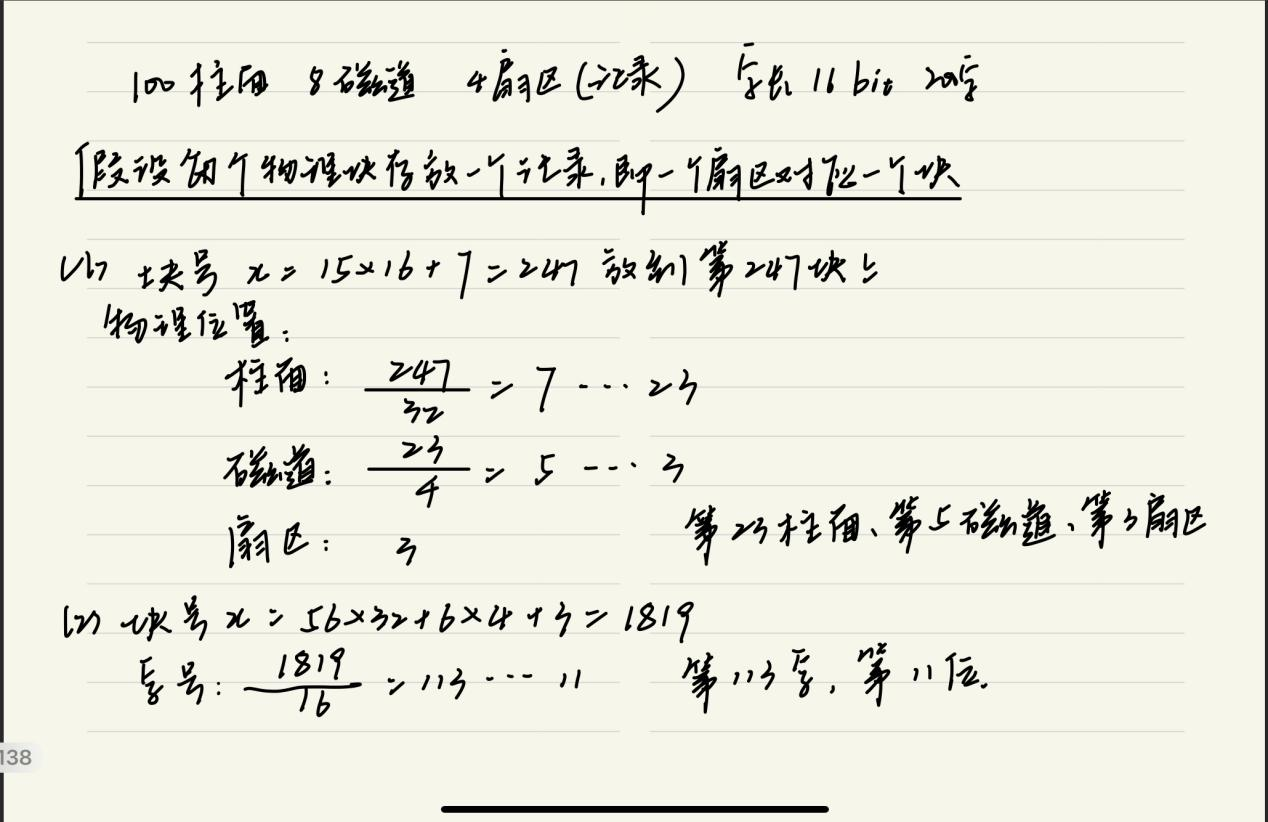 100柱面 8磁道 4扇区(记录) 字长16 bit 200字
假设每个物理块存放一个记录,即一个扇区对应一个块
(1) 块号 x = 15×16+7=247 放到第247块上
物理位置:
柱面: 247/32 = 7 ··· 23
磁道: 23/4 = 5 ··· 3
扇区: 3
第23柱面、第5磁道、第3扇区
(2) 块号 x = 56×32+6×4+3=1819
字号: 1819/16 = 113 ··· 11 第113字,第11位.
138